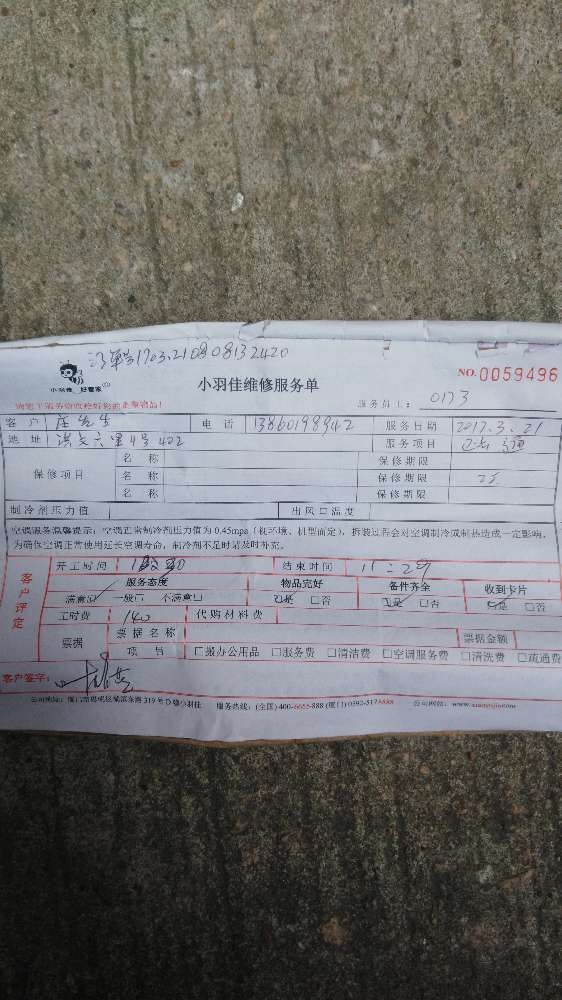 订单号170321080813 2420
小羽佳 好管家
小羽佳维修服务单
NO.0059496
服务员工: 0173
客户 庄先生 电话 13860198942 服务日期 2017.3.21
地址 洪文六里4号402 服务项目
保修项目 名称 保修期限
名称 保修期限
名称 保修期限
制冷剂压力值 出风口温度
空调服务温馨提示:空调正常制冷剂压力值为0.45mpa(视环境、机型而定),拆装过程会对空调制冷或制热造成一定影响,
为确保空调正常使用延长空调寿命,制冷剂不足时请及时补充。
客户评定
开工时间 结束时间 11:29
服务态度 物品完好 备件齐全 收到卡片
满意☑ 一般□ 不满意□ ☑是 □否 ☑是 □否 ☑是 □否
工时费 140 代购材料费
票据 票据名称 票据金额
项目 □报办公用品 □服务费 □清洁费 □空调服务费 □清洗费 □疏通费
客户签字:
服务热线:(全国)400-6655-888 (厦门)0592-5178888 公司网址:www.xiaoyujia.com